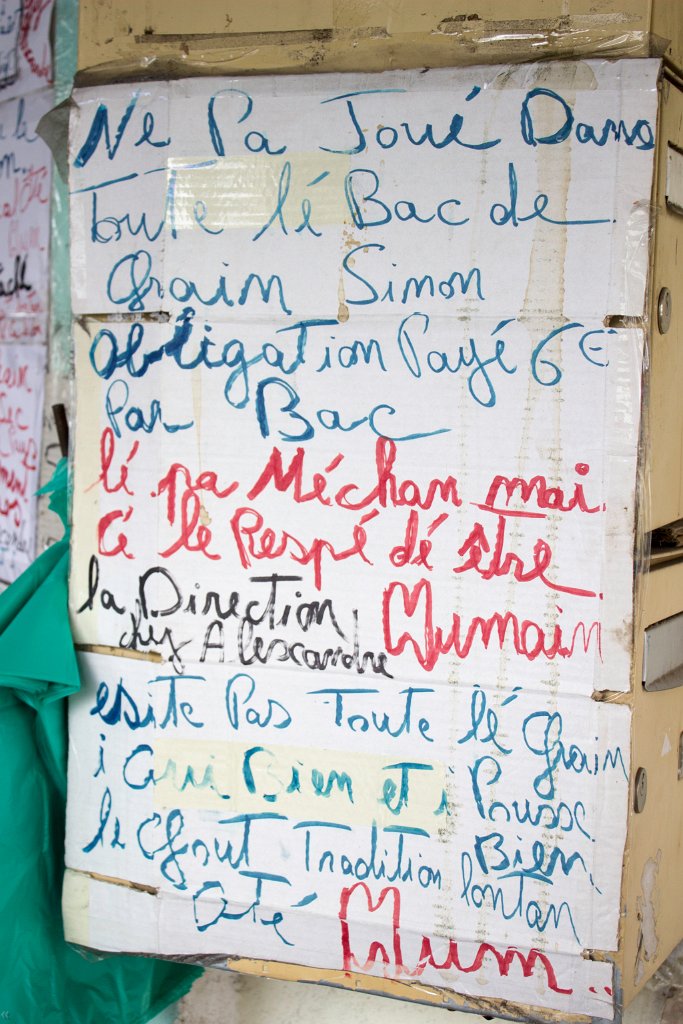 Ne Pa Joué Dans
Toute lé Bac de
Grain Simon
obligation Payé 6€
Par Bac
lé pa Méchan mai
Cé le Respé dé être
Humain
la Direction
chez Alexcandre
esite Pas Toute lé Grain
i Cui Bien et i Pousse
le Gout Tradition Bien
lontan
Oté Mum..